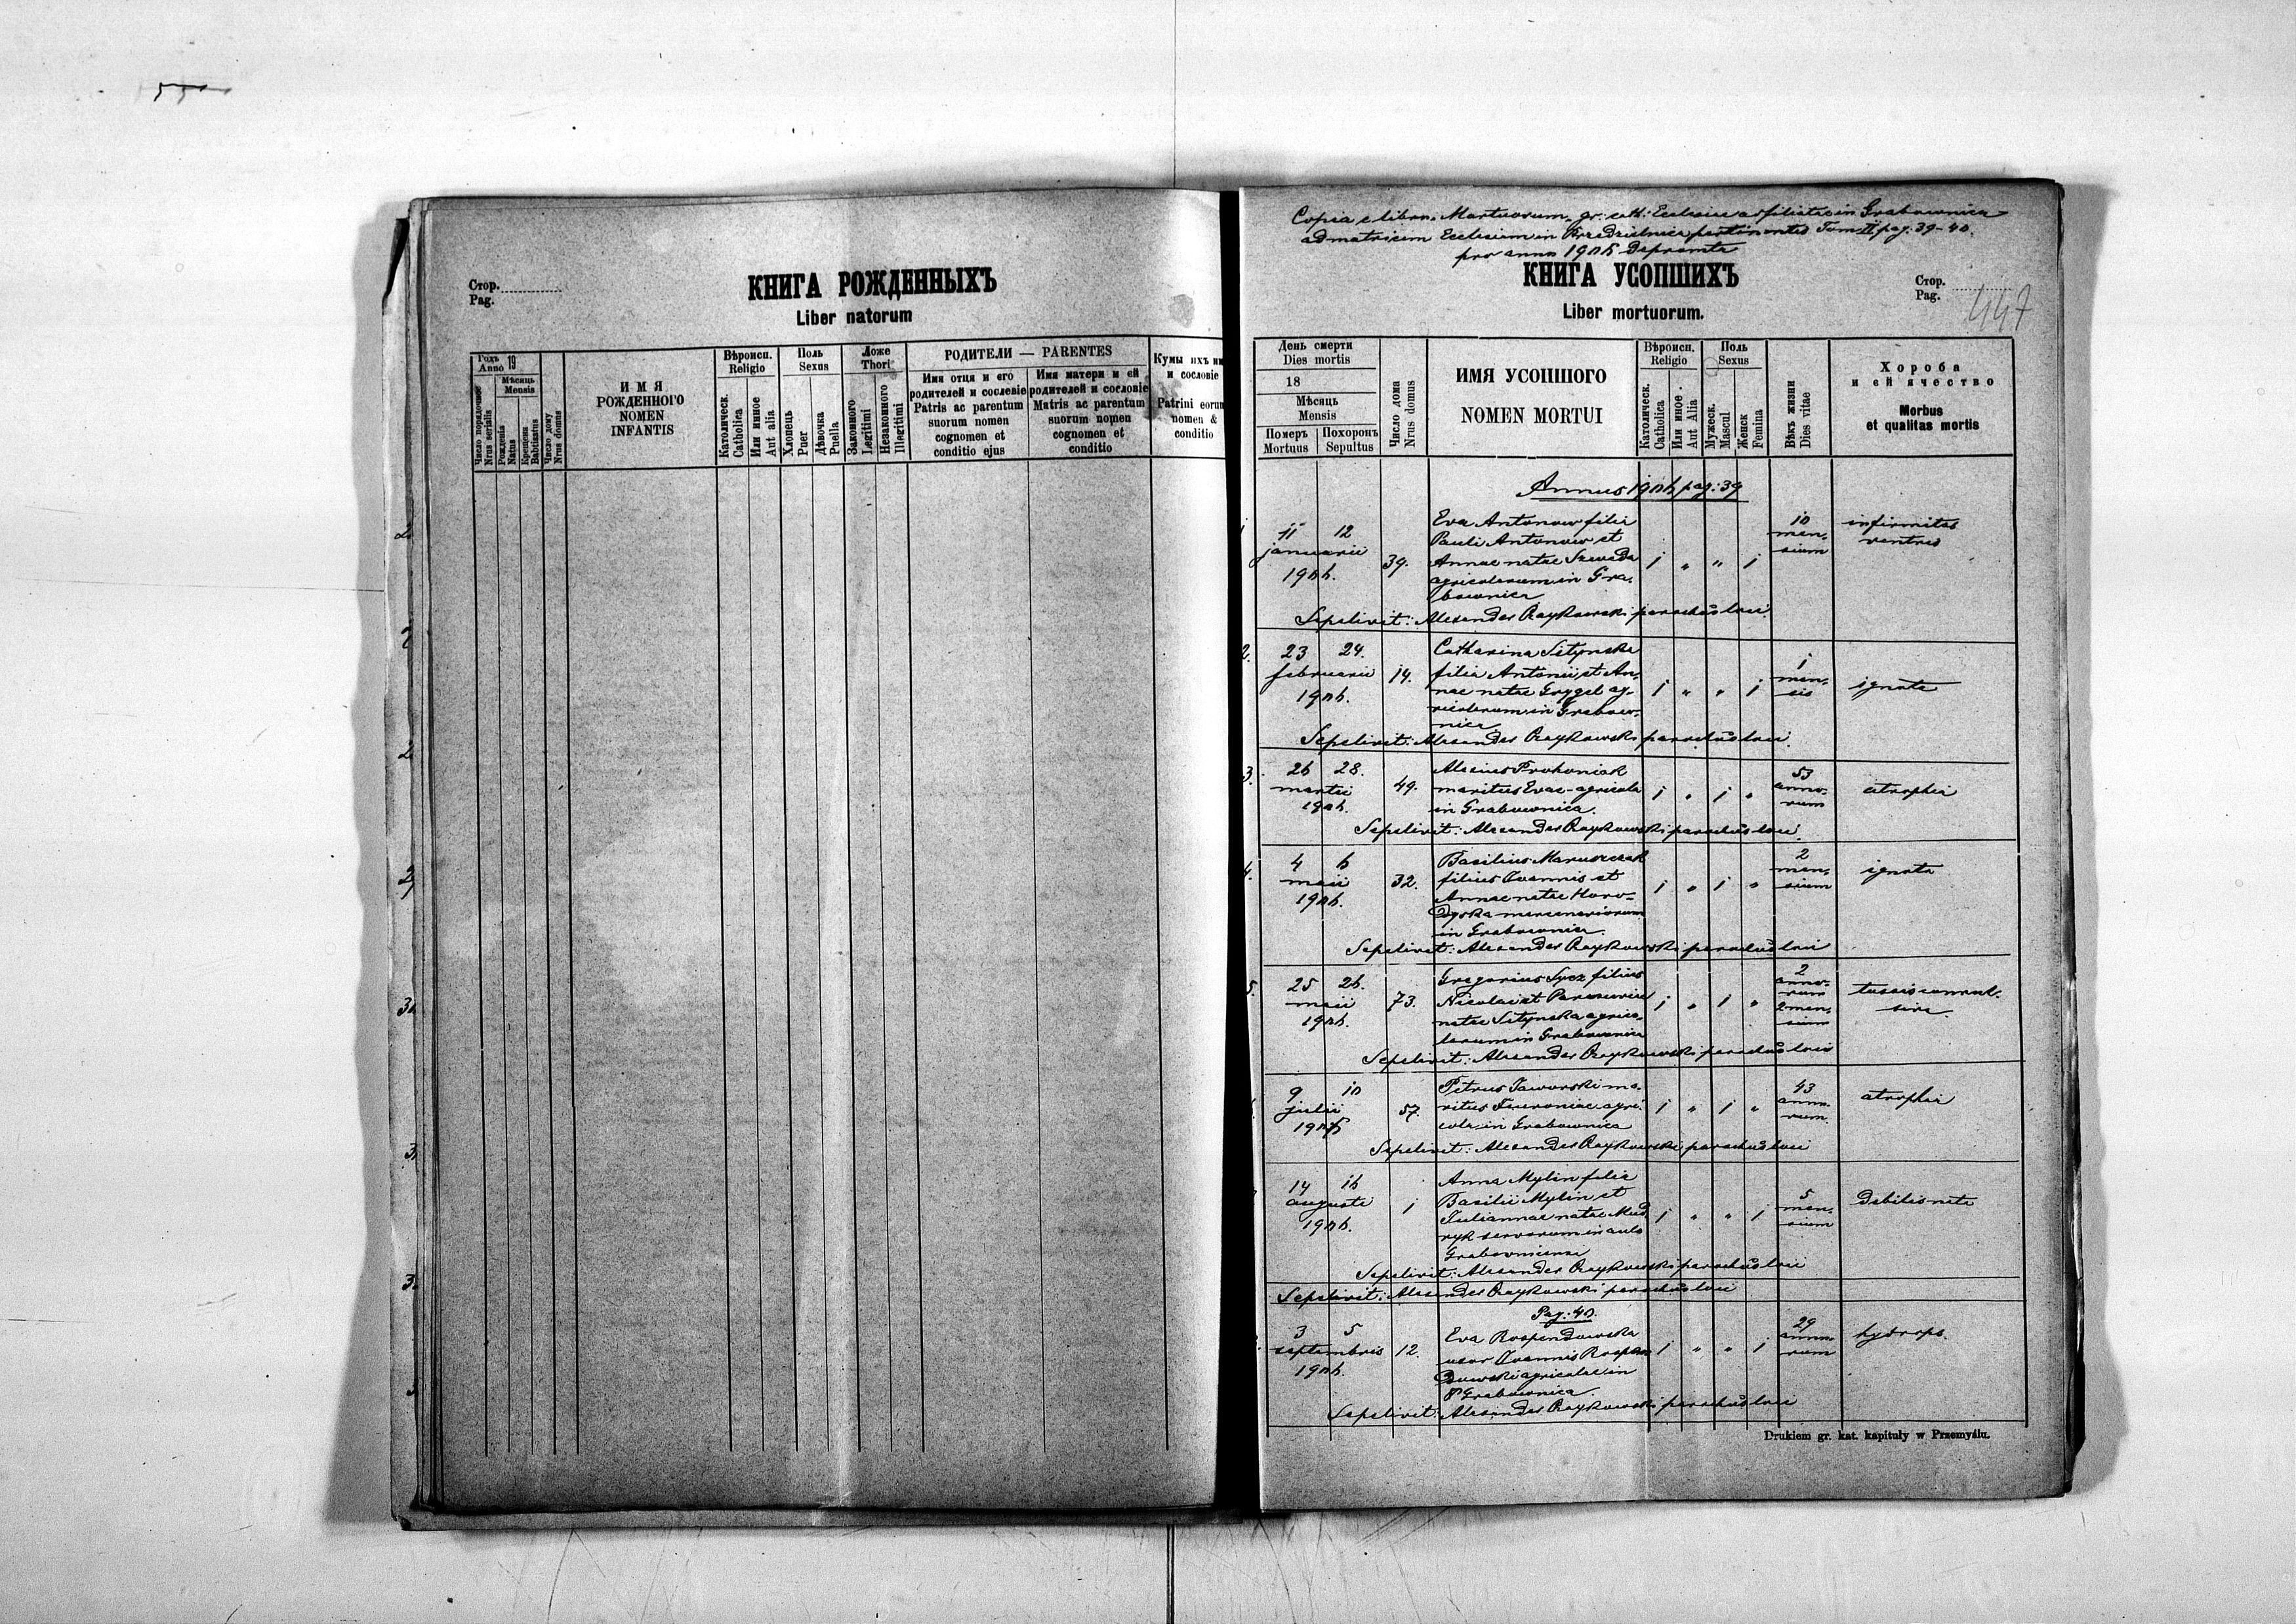 Стор.
Pag.
КНИГА РОЖДЕННЫХЪ
Liber natorum
Годъ 19
Anno
Мѣсяць
Mensis
Число порядочное
Nrus serialis
Рожденія
Natus
Крещенія
Babtisatus
Число дому
Nrus domus
ИМЯ
РОЖДЕННОГО
NOMEN
INFANTIS
Вѣроисп.
Religio
Католическ.
Catholica
Или инное
Aut alia
Поль
Sexus
Хлопець
Puer
Дѣвочка
Puella
Ложе
Thori
Законного
Legitimi
Незаконного
Illegitimi
РОДИТЕЛИ — PARENTES
Имя отця и его
родителей и сословіе
Patris ac parentum
suorum nomen
cognomen et
conditio ejus
Имя матери и ей
родителей и сословіе
Matris ac parentum
suorum nomen
cognomen et
conditio
Кумы ихъ
и сословіе
Patrini
nomen &
conditio
Copia e libro Mortuorum gr. cath: Ecclesiae ad filiatae in Grabownica
ad matricem Ecclesiam in pertinentis Tom. II pag. 39-40.
pro anno 1906 deprompta
КНИГА УСОПШИХЪ
Liber mortuorum.
Стор.
Pag.
447
День смерти
Dies mortis
18
Мѣсяць
Mensis
Померъ
Mortuus
Похоронъ
Sepultus
Число дома
Nrus domus
ИМЯ УСОПШОГО
NOMEN MORTUI
Вѣроисп.
Religio
Католическ.
Catholica
Или иное
Aut Alia
Поль
Sexus
Мужеск.
Mascul
Женск
Femina
Вѣкъ жизни
Dies vitae
Хороба
и ей ячество
Morbus
et qualitas mortis
Annus 1906 pag: 39
11 12
januarii
1906.
39.
Eva Antonow filia
Pauli Antonow et
Annae natae Szweda
agricolarum in Gra-
bownica
1 " " 1
10
men-
sium
infirmitas
ventris
Sepelivit: Alexander parochus loci
2. 23 24.
februarii
1906.
14.
Catharina Sitynska
filia Antonii et An-
nae natae Grygel ag-
ricolarum in Grabow-
nica
1 " " 1
1
men-
sis
ignota
Sepelivit: Alexander parochus loci.
3. 26 28.
martii
1906.
49.
Alexius Prokoniak
maritus Evae - agricola
in Grabownica.
1 " 1 "
53
anno-
rum
atrophia
Sepelivit: Alexander parochus loci.
4. 4 6
maii
1906.
32.
Basilius Maruszczak
filius Joannis et
Annae natae Horo-
dyska mercenariorum
in Grabownica.
1 " 1 "
2
men-
sium
ignota
Sepelivit: Alexander parochus loci
5. 25 26.
maii
1906.
73.
Gregorius Sycz filius
Nicolai et Parasceviae
natae Sitynska agrico-
larum in Grabownica
1 " 1 "
2
anno-
rum
2 men-
sium
tussis convul-
siva.
Sepelivit: Alexander parochus loci
9 10
julii
1906
57.
Petrus Jaworski ma-
ritus agri-
cola in Grabownica
1 " 1 "
43
anno-
rum.
atrophia
Sepelivit: Alexander parochus loci
14 16
augusti
1906.
1
Anna Mylin filia
Basilii Mylin et
Juliannae natae Mud-
ryk servorum in aula
Grabownicensi
1 " " 1
5
men-
sium
Sepelivit: Alexander parochus loci
Sepelivit: Alexander parochus loci
Pag: 40.
3 5
septembris
1906.
12.
Eva Rospendowska
uxor Joannis Rospen-
dowski agricolae in
Grabownica.
1 " " 1
29
anno-
rum
hydrops.
Sepelivit: Alexander parochus loci
Drukiem gr. kat. kapituły w Przemyślu.